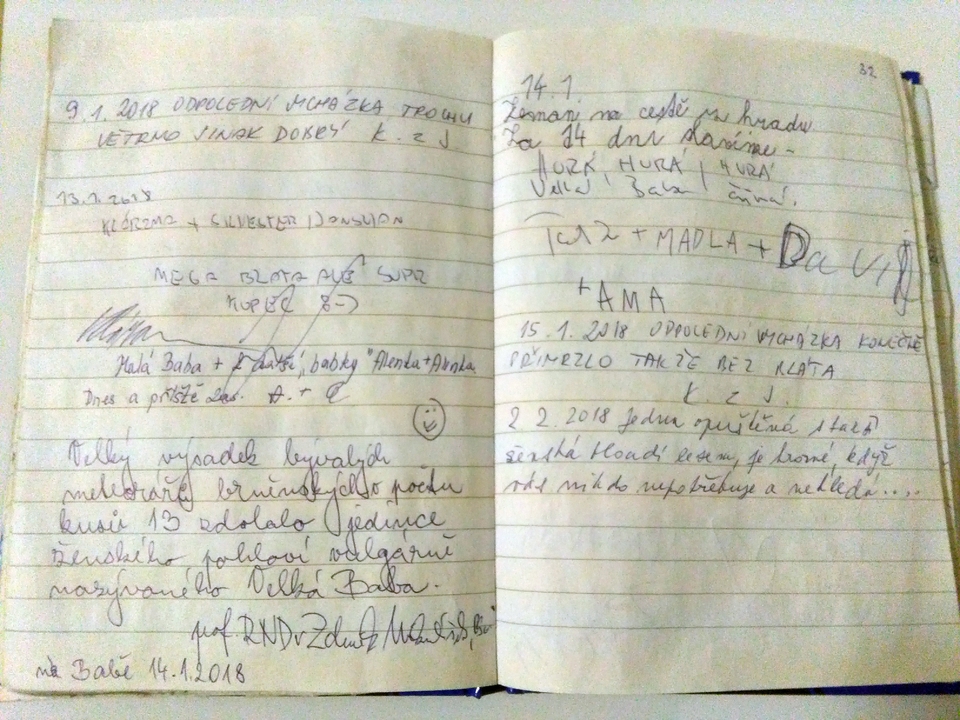 9.1.2018 ODPOLEDNÍ VYCHÁZKA TROCHU
VĚTRNO JINAK DOBRÝ K. z J.
13.1.2018
+ SILVESTER
MEGA BLATA ALE SUPR
KOPEC 8-)
Malá Baba + babky "Alenka +
Dnes a příště zas. A. + C
Velký výsadek bývalých
meteorářů brněnských o počtu
kusů 13 zdolalo jedince
ženského pohlaví vulgárně
nazývaného Velká Baba.
prof. RNDr Zdeněk
na Babě 14.1.2018
32
14.1.
na cestě na hradu
Za 14 dní slavíme -
HURÁ, HURÁ, HURÁ
Velká Baba
+ MADLA + David
+ AMA
15.1.2018 ODPOLEDNÍ VYCHÁZKA KONEČNĚ
PŘIMRZLO TAKŽE BEZ BLÁTA
K. z J.
2 2. 2018 Jedna opuštěná stará
ženská bloudí lesem, je hrozné, když
vás nikdo nepotřebuje a nehledá....